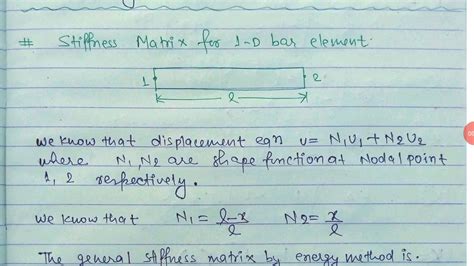 # Stiffness Matrix for 1-D bar element.
1 2
l
we know that displacement eqn u= N1U1+N2U2
where N1,N2 are shape function at Nodal point
1, 2 respectively.
we know that N1= l-x/l N2= x/l
The general stiffness matrix by energy method is.